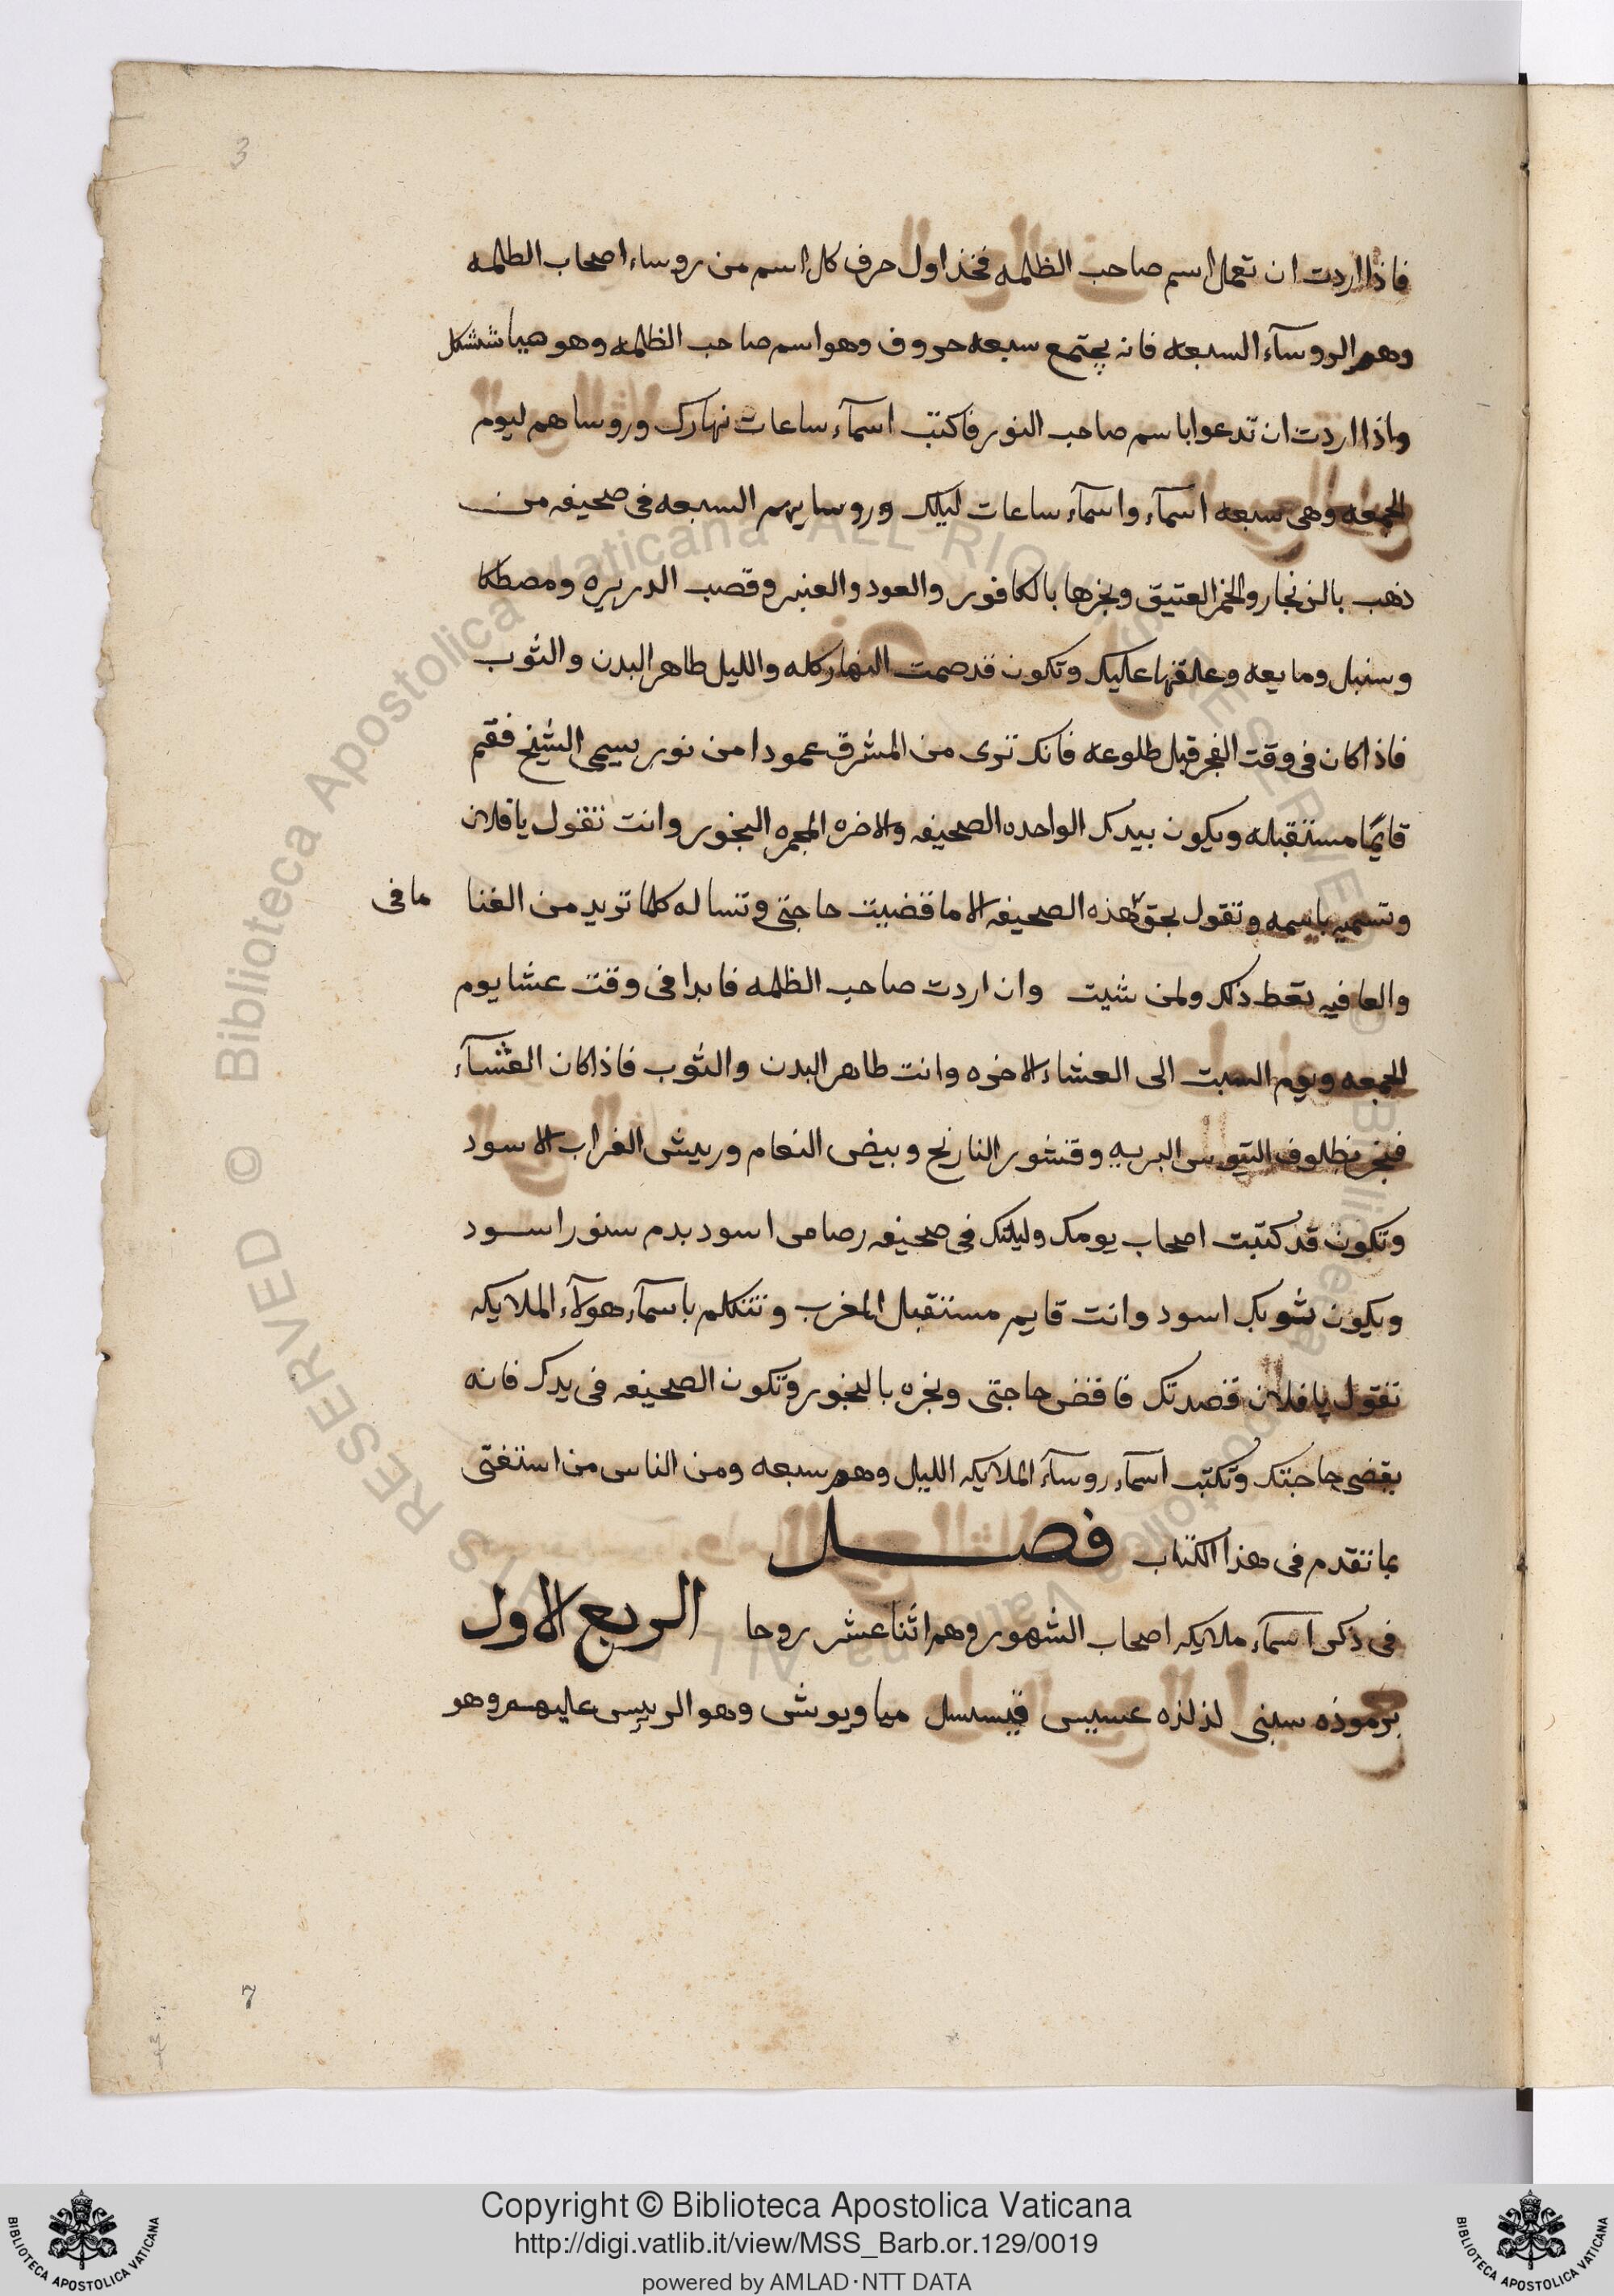 3
فاذا اردت ان تعمل اسم صاحب الظلمه فخذ اول حرف كل اسم من روساء اصحاب الظلمه
وهم الروسآء السبعه فانه يجتمع سبعه حروف وهو اسم صاحب الظلمه وهو
واذا اردت ان تدعوا باسم صاحب النور فاكتب اسمآء ساعات نهارك وروساهم ليوم
الجمعه وهى سبعه اسمآء واسمآء ساعات ليلك وروسايهم السبعه فى صحيفه من
ذهب بالزنجار والخمر العتيق وبخرها بالكافور والعود والعنبر وقصب الدريره ومصطكا
وسنبل ومايعه وعلقها عليك وتكون قد صمت النهار كله والليل طاهر البدن والثوب
فاذا كان فى وقت الفجر قبل طلوعه فانك ترى من المشرق عمودا من نور يسمى الشيخ فقم
قايما مستقبله ويكون بيدك الواحده الصحيفه والاخره المجمره البخور وانت تقول يا فلان
وتسميه باسمه وتقول بحق هذه الصحيفه الا ما قضيت حاجتى وتساله كلما تريد من الغنا
ما فى
والعافيه تعط ذلك ولمن شيت وان اردت صاحب الظلمه فابدا فى وقت عشا يوم
الجمعه ويوم السبت الى العشاء الاخره وانت طاهر البدن والثوب فاذا كان العشآء
فبخر بظلوف التيوس البريه وقشور النارنج وبيض النعام وريش الغراب الاسود
وتكون قد كتبت اصحاب يومك وليلتك فى صحيفه رصاص اسود بدم سنور اسود
ويكون ثوبك اسود وانت قايم مستقبل المغرب وتتكلم باسمآء هولآء الملايكه
تقول يا فلان قصدتك فاقض حاجتى وبخره بالبخور وتكون الصحيفه فى يدك فانه
يقضى حاجتك وتكتب اسمآء روسآء الملايكه الليل وهم سبعه ومن الناس من استغنى
بما تقدم فى هذا الكتاب فصل
فى ذكر اسمآء ملايكه اصحاب الشهور وهم اثنا عشر روحا الربع الاول
برموذه وهو الرييس عليهم وهو
7
Biblioteca Apostolica Vaticana ALL RIGHTS RESERVED ©
Copyright © Biblioteca Apostolica Vaticana
http://digi.vatlib.it/view/MSS_Barb.or.129/0019
powered by AMLAD·NTT DATA
BIBLIOTECA APOSTOLICA VATICANA
BIBLIOTECA APOSTOLICA VATICANA